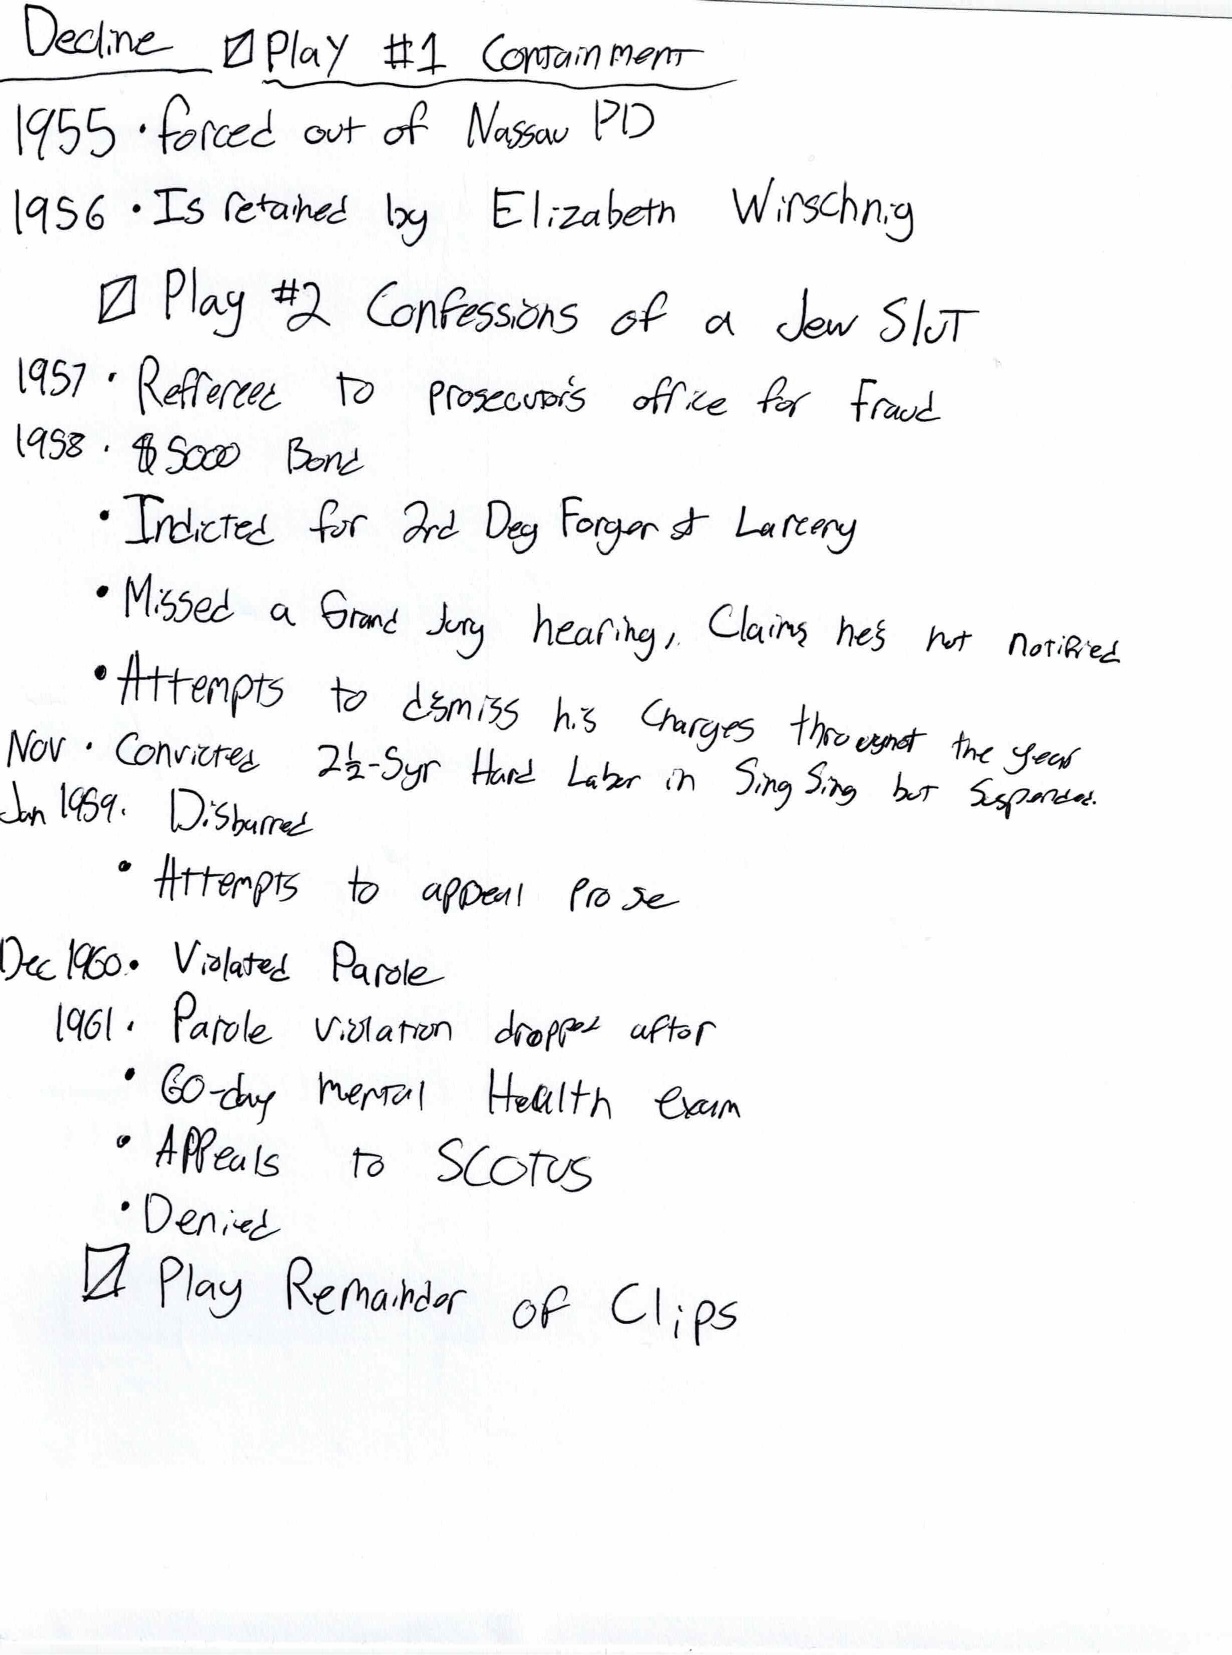 Decline ☑ Play #1 Containment
1955 • forced out of Nassau PD
1956 • Is retained by Elizabeth Wirschnig
☑ Play #2 Confessions of a Jew Slut
1957 • Reffereed to prosecutor's office for Fraud
1958 • $5000 Bond
• Indicted for 2rd Deg Forger & Larceny
• Missed a Grand Jury hearing, Claims he's not notified
• Attempts to dismiss his Charges throughout the year
Nov • Convicted 2½-5yr Hard Labor in Sing Sing but Suspended.
Jan 1959. Disbarred
• Attempts to appeal Pro se
Dec 1960. • Violated Parole
1961. Parole violation dropped after
• 60-day mental Health exam
• Appeals to SCOTUS
• Denied
☑ Play Remainder of Clips